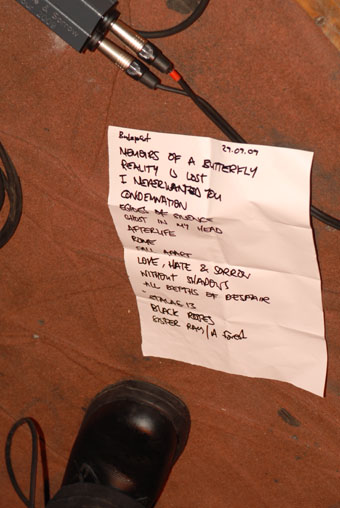 & SORROW
Budapest 29.09.09
MEMOIRS OF A BUTTERFLY
REALITY IS LOST
I NEVER WANTED YOU
CONDEMNATION
EDGES OF SILENCE
GHOST IN MY HEAD
AFTERLIFE
ROME
FALL APART
LOVE, HATE & SORROW
WITHOUT SHADOWS
ALL DEPTHS OF DESPAIR
STALAG 13
BLACK ROSES
SISTER RAY / A Forest